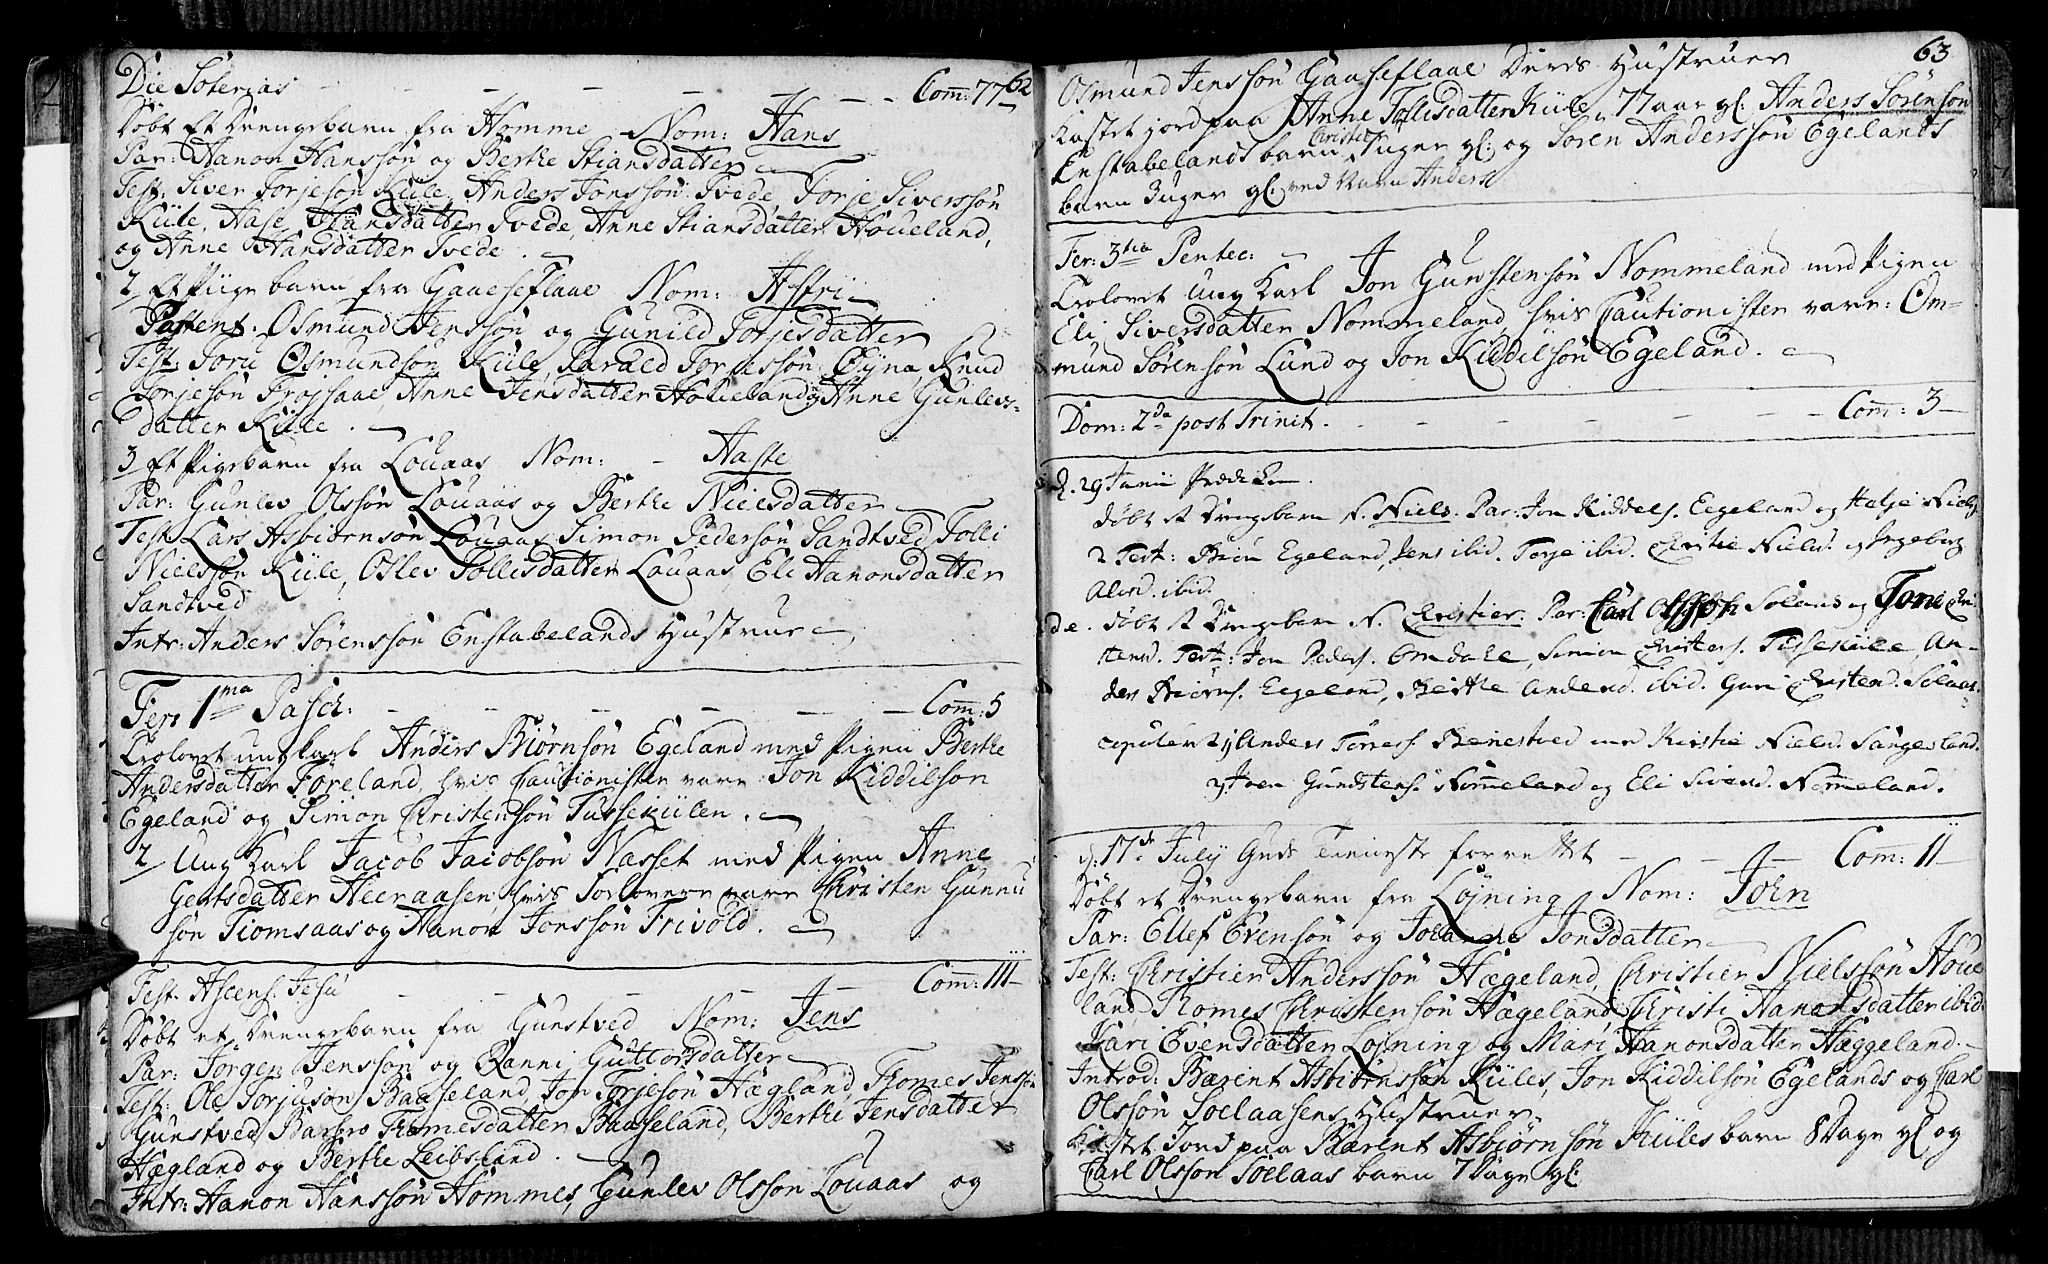 Die Soterias - - - - - - - Com: 77 62
Døbt Et Drengebarn fra Homme - Nom: Hans
Par: Hanon Hanssøn og Berthe Stiansdatter
Test: Siver Torjesøn Kiile, Anders Jonssøn Tvede, Torje Siverssøn
Kiile, Aase Hansdatter Tvede, Anne Stiansdatter Houeland,
og Anne Hansdatter Tvede.
2 Et Piige barn fra Gaaseflaae Nom: Asfri
Parent. Osmund Jenssøn og Gunild Torjesdatter
Test: Toru Osmundsøn Kiile, Harald Torjessøn Øyna, Knud
Torjesøn Propsaae, Anne Jensdatter Houeland og Anne Gunlevs-
datter Kiile.
3 Et Pigebarn fra Louaas Nom: - Aaste
Par: Gunlev Olssøn Louaas og Berthe Nielsdatter
Test Lars Asbiørnsøn Louaas, Simon Pedersøn Sandtved, Tolli
Nielssøn Kiile, Oslev Tollisdatter Louaas, Eli Hanonsdatter
Sandtved
Intr: Anders Sørenssøn Enstabelands Hustrue
Fer: 1ma Pasch: - - - - - Com: 5
Trolovet ungkarl Anders Biørnsøn Egeland med Pigen Berthe
Andersdatter Foreland, hvis Cautionister vare Jon Kiddilsøn
Egeland og Simon Christensøn Tussekiilen.
2 Ung Karl Jacob Jacobsøn Nasset med Pigen Anne
Gertsdatter Heeraasen, hvis Forlovere vare Christen Gunnu
søn Tiomsaas og Hanon Jonssøn Trivold.
Fest. Ascens. Jesu - - - - Com: 111
Døbt et Drengebarn fra Gunstved Nom: Jens
Par: Jørgen Jenssøn og Ranni Guttorsdatter
Test: Ole Torjusøn Baaseland, Jon Torjesøn Hægland, Thomes Jenssøn
Gunstved Barbro Thomesdatter Baaseland, Berthe Jensdatter
Hægland og Berthe Leibsland.
Intr: Hanon Hanssøn Hommes, Gunlev Olsson Louaas og
63
Osmund Jenssøn Gaaseflaae Deres Hustruer
Kastet jord paa Anne Tollisdatter Kiile, 77 aar gl: Anders Sørensøn
Enstabelands barn Christen uger gl: og Søren Anderssøn Egelands
barn 3 uger gl: ved Navn Anders
Fer: 3tia Pentec:
Trolovet Ung Karl Jon Gunstensøn Nommeland med Pigen
Eli Siversdatter Nommeland, hvis Cautionister vare: Om-
mund Sørensøn Lund og Jon Kiddilsøn Egeland.
Dom: 2da post Trinit. - - - - - Com: 3
d. 29 Junii Prædiken.
døbt et Drengebarn N. Niels. Par. Jon Kiddels. Eegeland og Helje Niels
2 Test: Biøn Egeland, Jens ibid. Torje ibid. Christie Nielsd. og Ingeborg
Alend. ibid.
døbt et Drengebarn N. Christier. Par: Carl Olssøn Solaas og Tone Chri
stensd. Test: Jon Peders. Omdale, Simon Christens. Tissekiile, An-
ders Biørns. Eegeland, Berthe Andersd. ibid. Guri Christend. Solaas.
copuleret 1) Anders Torres. Beinestved med Kirstie Nielsd. Sangesland.
2) Joen Gundstens. Nommeland og Eli Sivesd. Nommeland.
d: 17de July Guds Tieneste forrettet - - - Com: 11
Døbt et Drengebarn fra Løjning Nom: Joen
Par: Ellef Evensøn og Johanne Jonsdatter
Test: Christier Anderssøn Hægeland, Christier Nielssøn Houe
land Thomes Christensøn Hægeland Christi Hanonsdatter ibid
Kari Evensdatter Løjning og Mari Hanonsdatter Hæggeland.
Introd: Bærent Asbiørnssøn Kiiles, Jon Kiddilsøn Egelands og Carl
Olssøn Soelaasens Hustruer.
Kastet Jord paa Bærent Asbjørnsøn Kiiles barn 8 Dage gl og
Carl Olsson Soelaas barn 7 Dage gl: